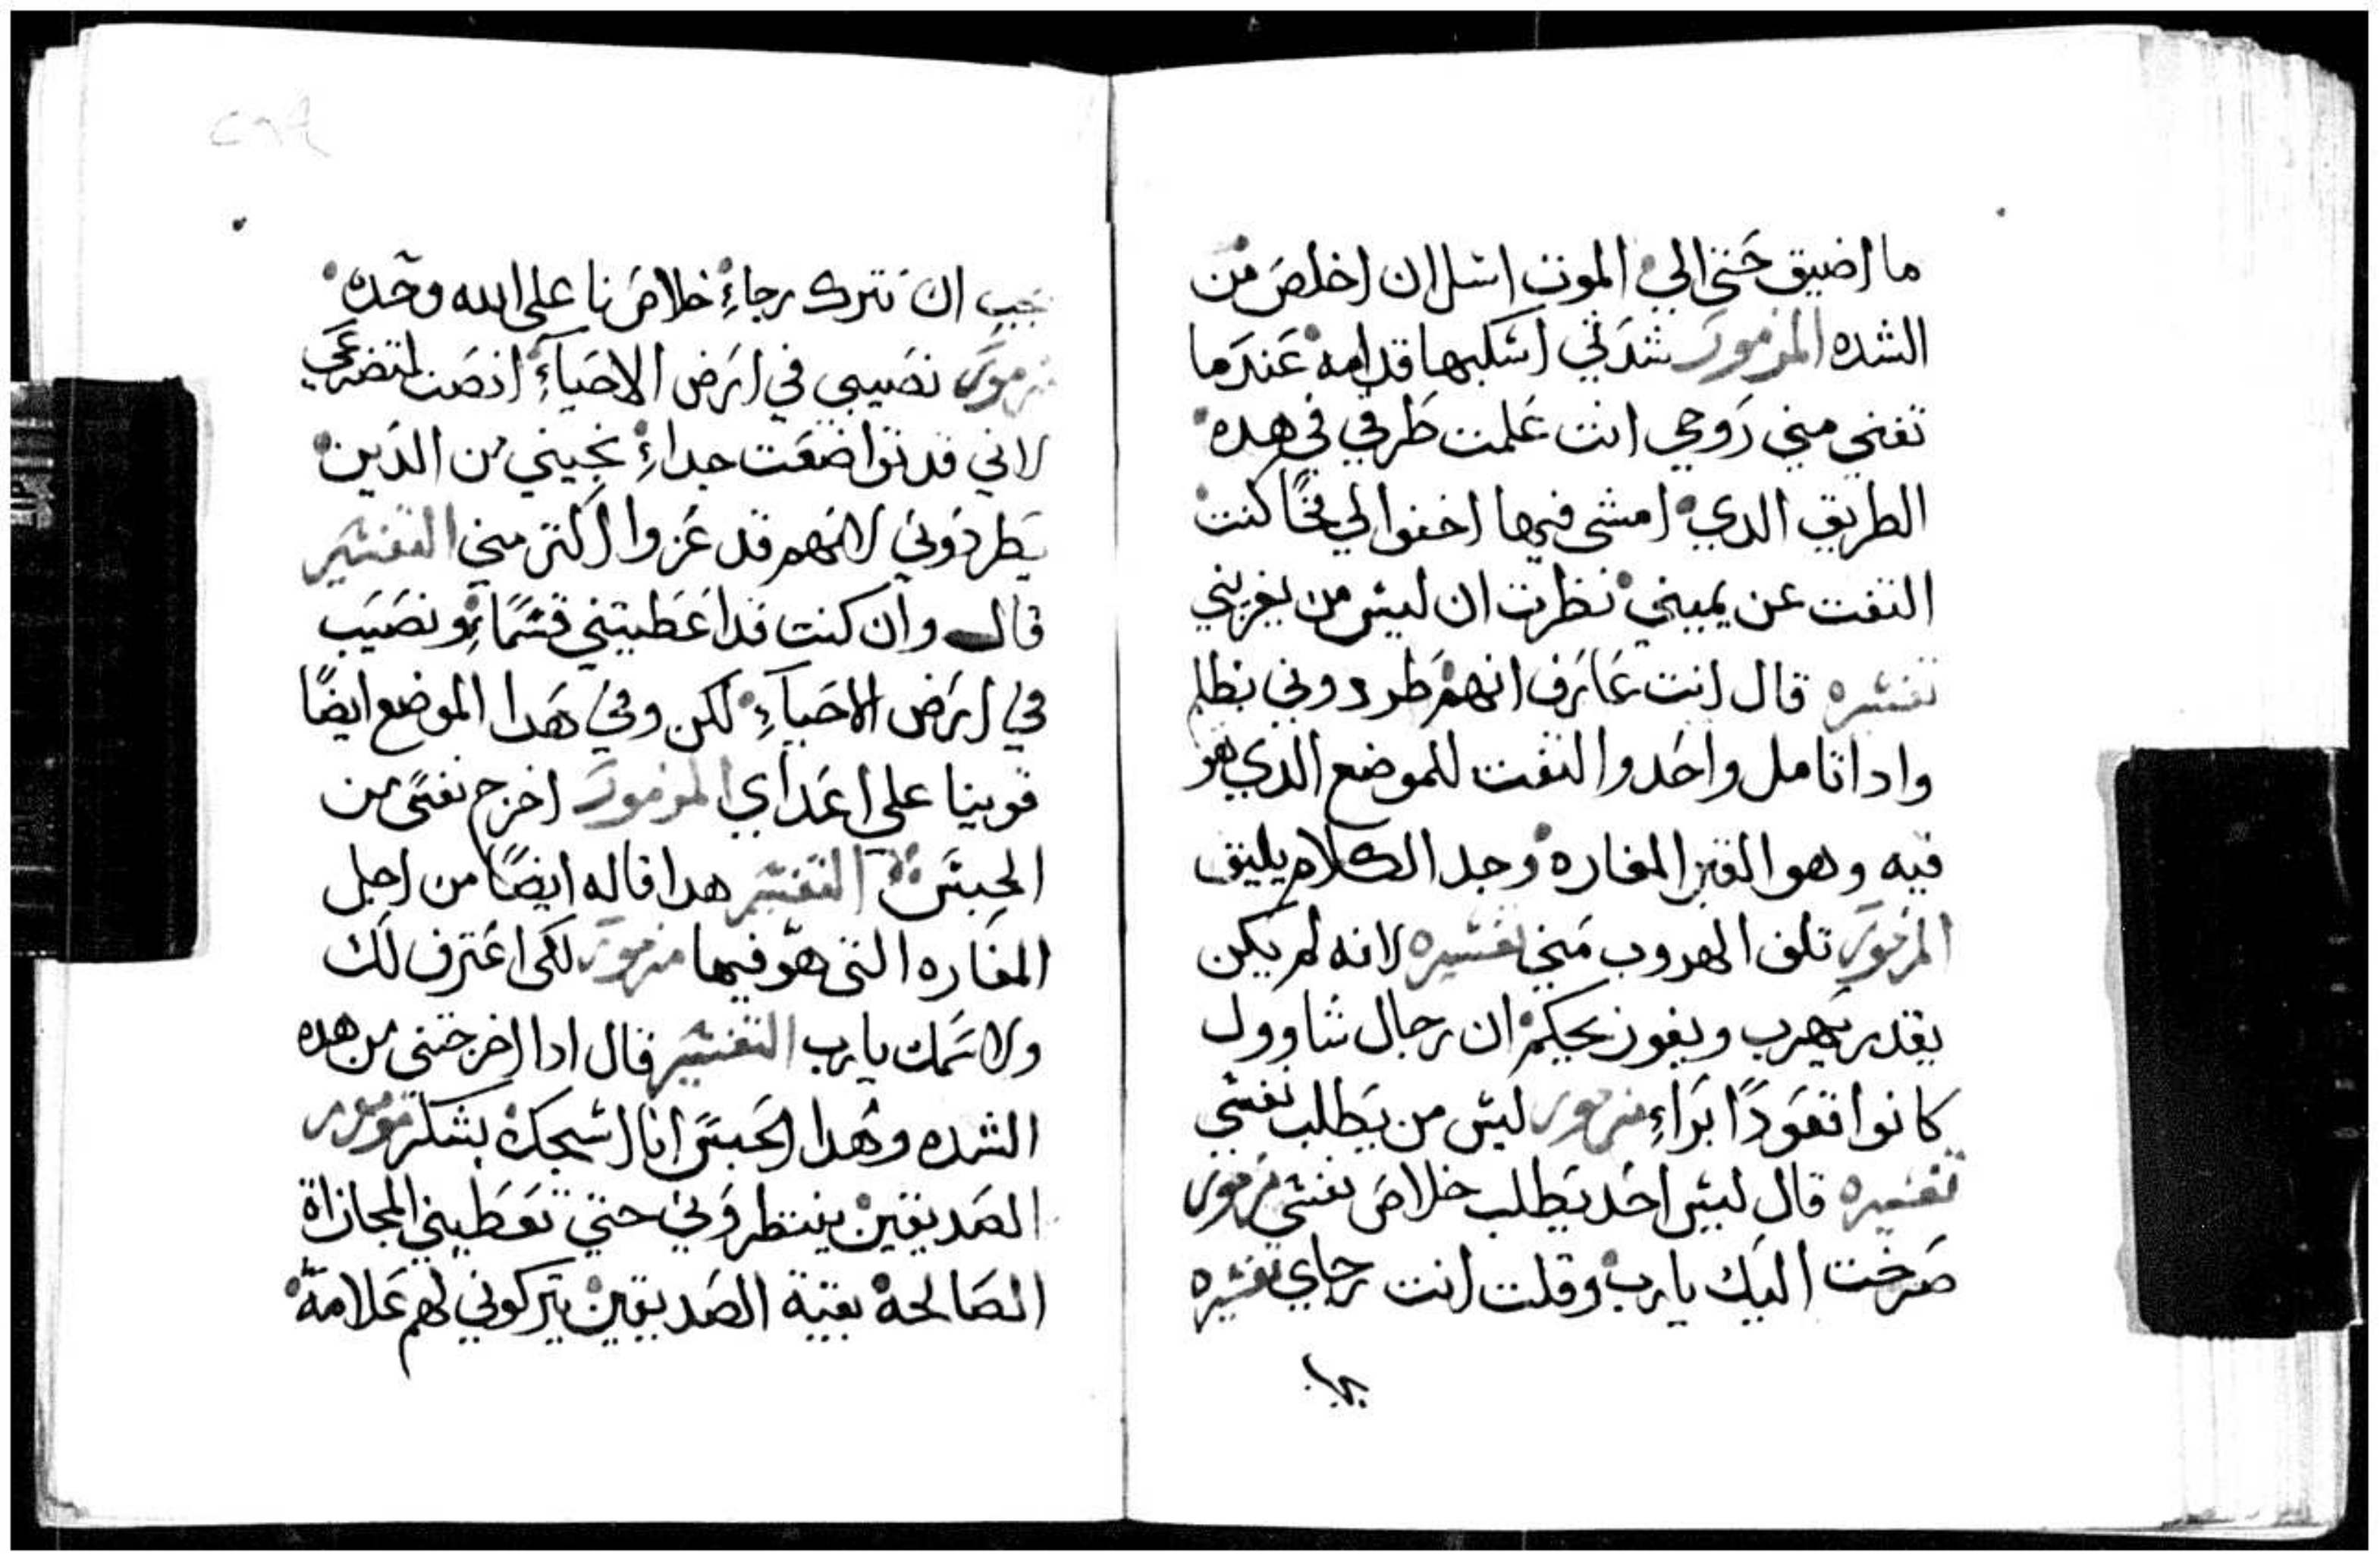 ما اضيق حتى الي الموت اسل ان اخلص من
الشده المزمور شدتي اسكبها قدامه عندما
تفني مني روحي انت علمت طرقي في هده
الطريق الدي امشي فيها اخفوا لي فخًا كنت
التفت عن يميني نظرت ان ليس من يعرفني
تفسيره قال انت عارف انهم طردوني بظلم
وادا تامل واحد والتفت للموضع الدي هو
فيه وهو القبر المغاره وجد الكلام يليق
المزمور تلف الهروب مني تفسيره لانه لم يكن
يقدر يهرب ويفوز بحيكم ان رجال شاوول
كانوا قعودًا براء مزمور ليس من يطلب نفسي
تفسيره قال ليس احد يطلب خلاص نفسي مزمور
صرخت اليك يارب وقلت انت رجاي تفسيره
يجب ان نترك رجاء خلاصنا على الله وحده
مزمور نصيبي في ارض الاحياء انصت لتضرعي
لاني قد تواضعت جداء نجيني من الدين
يطردوني لانهم قد عزوا اكتر مني التفسير
قال وان كنت قد اعطيتني قسماء ونصيب
في ارض الاحياء لكن وفي هدا الموضع ايضًا
قوينا علي اعداي المزمور اخرج نفسي من
الحبس التفسير هدا قاله ايضًا من اجل
المغاره التي هو فيها مزمور لكي اعترف لك
ولاسمك يارب التفسير قال ادا اخرجتني من هده
الشده وهدا الحبس انا اسبحك بشكر مزمور
الصديقين ينتظروني حتي تعطيني المجازاة
الصالحة بقية الصديقين يتركوني لهم علامة